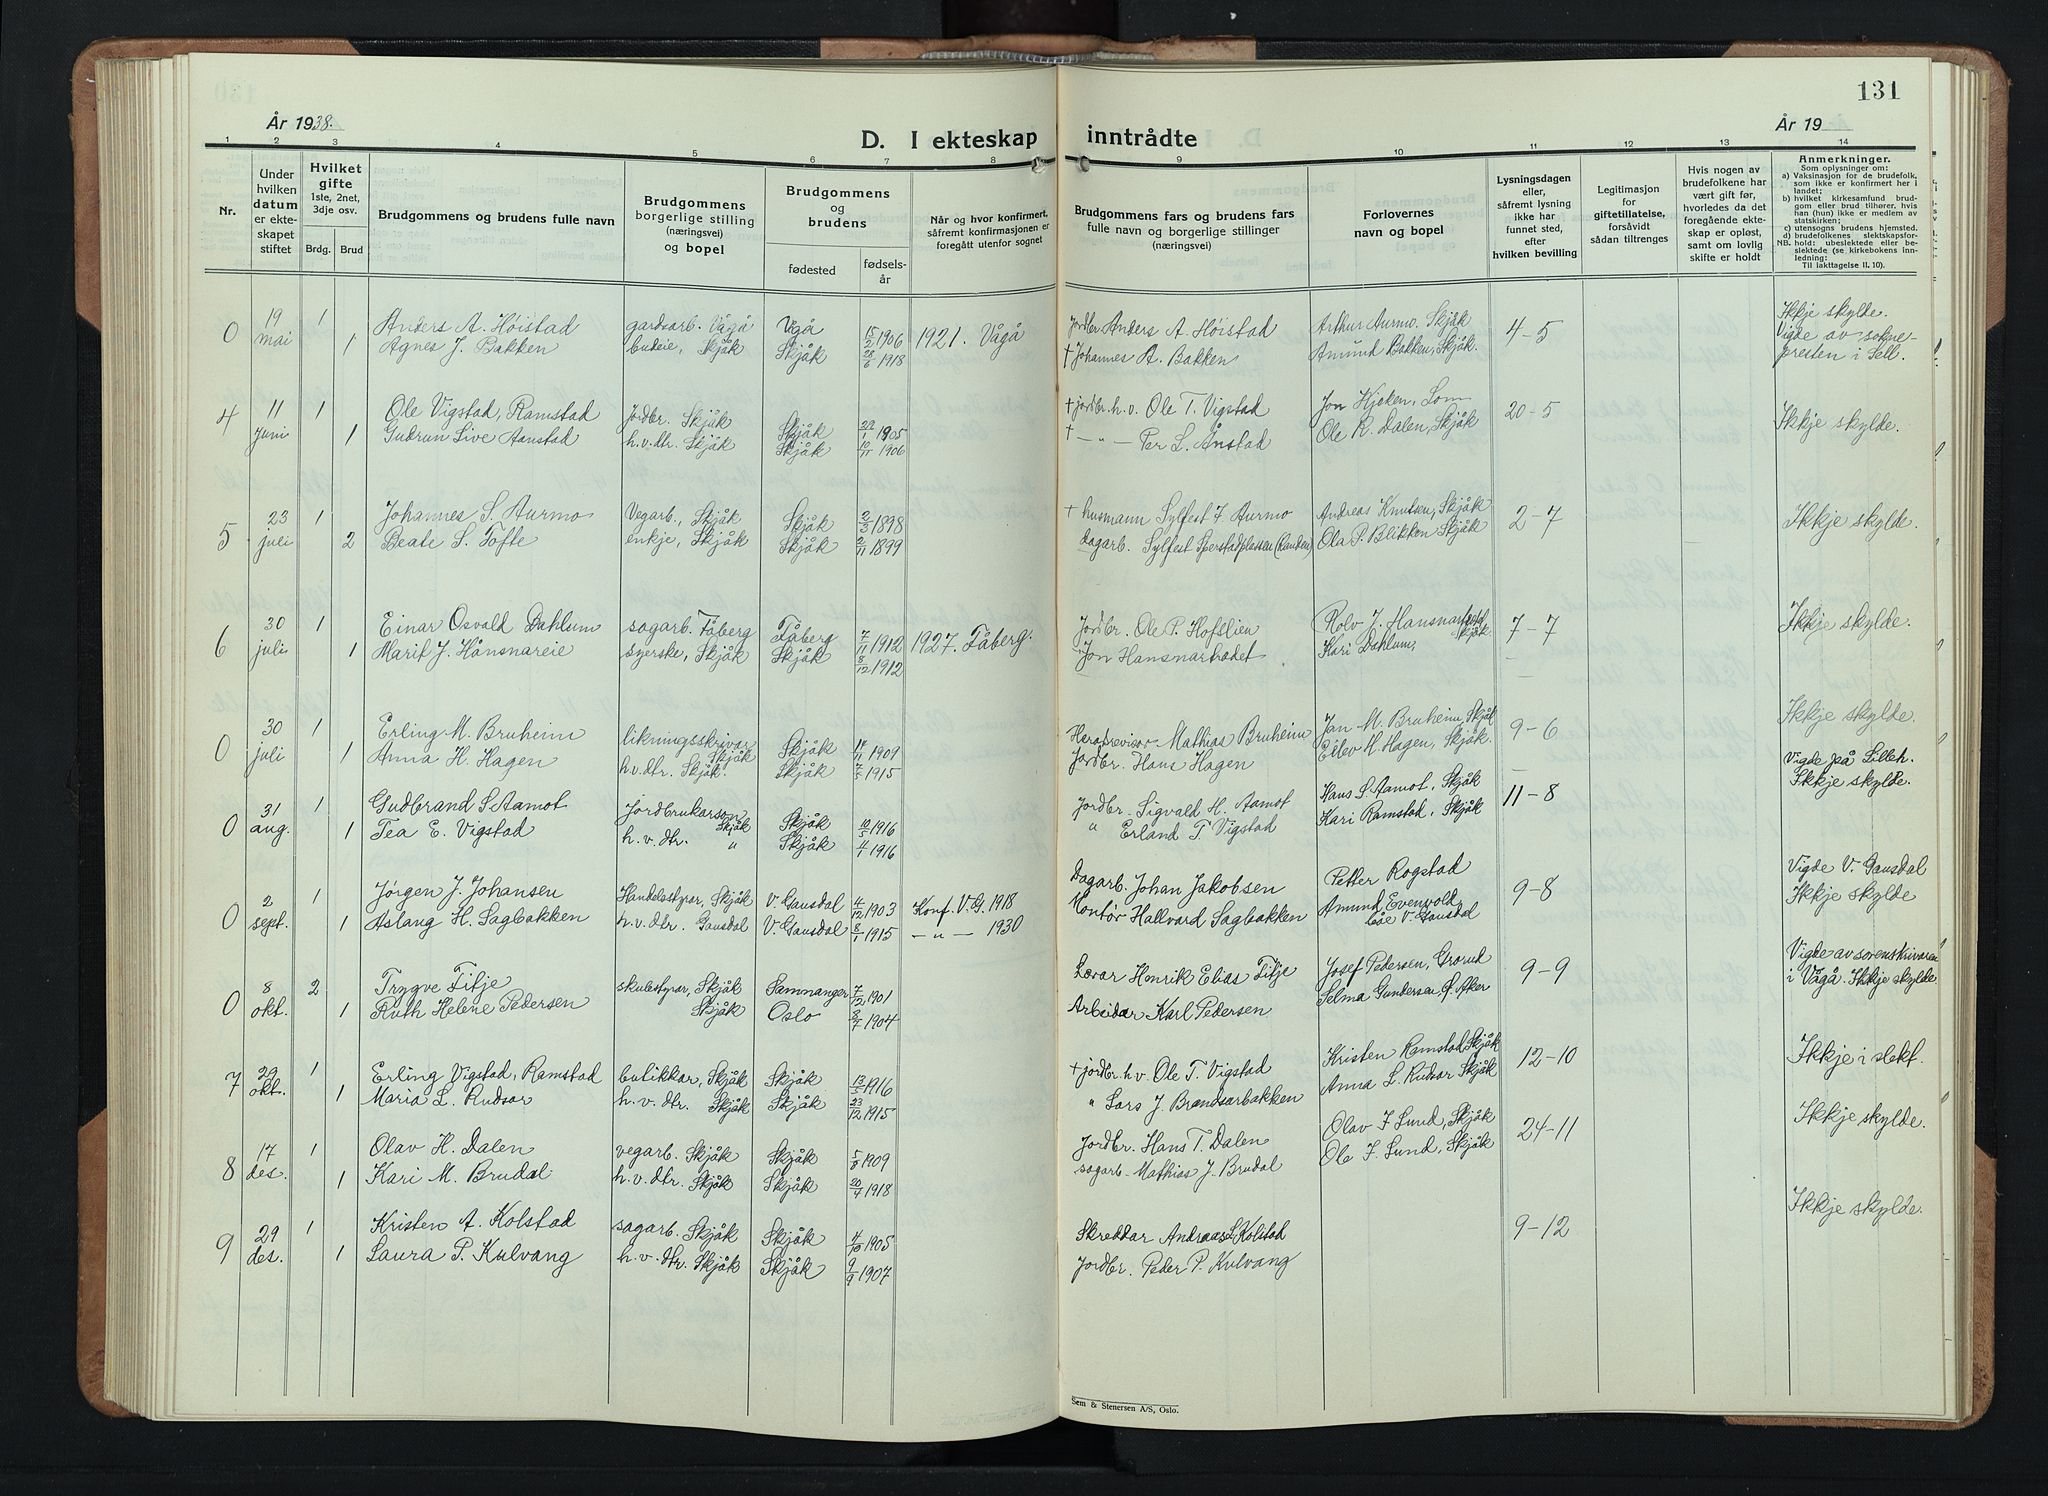 131
År 1938.
År 19
D. I ekteskap inntrådte
1 2 3 4 5 6 7 8 9 10 11 12 13 14
Nr.
Under hvilken datum er ekteskapet stiftet
Hvilket gifte 1ste, 2net, 3dje osv.
Brdg. Brud
Brudgommens og brudens fulle navn
Brudgommens borgerlige stilling (næringsvei) og bopel
Brudgommens og brudens
fødested
fødselsår
Når og hvor konfirmert, såfremt konfirmasjonen er foregått utenfor sognet
Brudgommens fars og brudens fars fulle navn og borgerlige stillinger (næringsvei)
Forlovernes navn og bopel
Lysningsdagen eller, såfremt lysning ikke har funnet sted, efter hvilken bevilling
Legitimasjon for giftetillatelse, forsåvidt sådan tiltrenges
Hvis nogen av brudefolkene har vært gift før, hvorledes da det foregående ekteskap er opløst, samt om lovlig skifte er holdt
Anmerkninger.
Som oplysninger om:
a) Vaksinasjon for de brudefolk, som ikke er konfirmert her i landet;
b) hvilket kirkesamfund brudgom eller brud tilhører, hvis han (hun) ikke er medlem av statskirken;
c) utensogns brudens hjemsted.
d) brudefolkenes slektskapsforhold: ubeslektede eller beslektede (se kirkebokens innledning:
NB.
Til iakttagelse II. 10).
0 19 mai 1 Anders A. Høistad gardsarb. Vågå Vågå 15/2 1906 1921. Vågå Jordbr. Anders A. Høistad Arthur Aurmo. Skjåk 4-5 Ikkje skylde.
1 Agnes J. Bakken budeie, Skjåk Skjåk 28/6 1918 † Johannes A. Bakken Amund Bakken, Skjåk. Vigde av sokne-
presten i Sell.
4 11 juni 1 Ole Vigstad, Ramstad jordbr. Skjåk Skjåk 29/1 1905 † jordbr. h.v. Ole T. Vigstad Jon Hjeken, Lom 20-5 Ikkje skylde.
1 Gudrun Live Aanstad h.v.dtr. Skjåk Skjåk 10/11 1906 † — „ — Per L. Ånstad Ole R. Dalen, Skjåk
5 23 juli 1 Johannes S. Aurmo Vegarb., Skjåk Skjåk 2/3 1898 † husmann Sylfest J. Aurmo Andreas Knutsen, Skjåk 2-7 Ikkje skylde.
2 Beate S. Tofte enkje, Skjåk Skjåk 2/11 1899 dagarb. Sylfest Sperstadplassen (Randen) Ola P. Blikken Skjåk
6 30 juli 1 Einar Osvald Dahlum sagarb. Fåberg Fåberg 7/11 1912 1927. Fåberg. Jordbr. Ole P. Hofslien Rolv J. Hansnar Skjåk. 7-7 Ikkje skylde.
1 Marit J. Hånsnareie syerske, Skjåk Skjåk 8/12 1912 Jon Hansnartrødet Kari Dahlum,
0 30 juli 1 Erling M. Bruheim likningsskrivar Skjåk Skjåk 17/11 1909 Heradsrevisor Mathias Bruheim Jan M. Bruheim, Skjåk 9-6 Ikkje skylde.
1 Anna H. Hagen h.v.dtr. Skjåk. Skjåk 7/5 1915 Jordbr. Hans Hagen Eilev H. Hagen, Skjåk. Vigde på Lilleh.
0 31 aug. 1 Gudbrand S Aamot Jordbrukarson Skjåk Skjåk 10/5 1916 Jordbr. Sigvald H. Aamot Hans S. Aamot, Skjåk 11-8 Ikkje skylde.
1 Tea E. Vigstad h.v.dtr. „ Skjåk 4/1 1916 „ Erland T. Vigstad Kari Ramstad, Skjåk
0 2 sept. 1 Jørgen J. Johansen Handelsstyrar, Skjåk V. Gausdal 4/12 1903 Konf. V.G. 1918 Dagarb. Johan Jakobsen Petter Rogstad 9-8 Vigde V. Gausdal
1 Aslaug H. Sagbakken h.v.dtr. Gausdal V. Gausdal 8/1 1915 — „ — 1930 Montør Hallvard Sagbakken Amund Evenvold, V. Gausdal Ikkje skylde
0 8 okt. 2 Trygve Titje skulestyrar, Skjåk Samnanger 7/12 1901 Lærar Henrik Elias Titje Josef Pedersen, Grorud 9-9 Vigde av sorenskrivaren
1 Ruth Helene Pedersen Skjåk Oslo 8/7 1904 Arbeidar Karl Pedersen Selma Gundersen, Ø. Aker i Vågå. Ikkje skylde.
7 29 okt. 1 Erling Vigstad, Ramstad butikkar, Skjåk Skjåk 13/5 1916 † jordbr. h.v. Ole T. Vigstad Kristen Ramstad Skjåk 12-10 Ikkje i slekt.
1 Maria L. Rudsar h.v.dtr. Skjåk Skjåk 23/12 1915 „ Lars J. Brandsarbakken Anna L. Rudsar Skjåk
8 17 des. 1 Olav H. Dalen vegarb. Skjåk Skjåk 1909 Jordbr. Hans T. Dalen Olav J Lund, Skjåk 24-11 Ikkje skylde.
1 Kari M. Brudal h.v.dtr. Skjåk Skjåk 20/4 1918 sagarb. Mathias J. Brudal Ole J. Lund, Skjåk
9 29 des. 1 Kristen A. Kolstad sagarb. Skjåk Skjåk 4/10 1905 Skreddar Andreas L Kolstad 9-12 Ikkje skylde.
1 Laura P. Kulvang h.v.dtr. Skjåk Skjåk 9/9 1907 Jordbr. Peder P. Kulvang
Sem & Stenersen A/S, Oslo.